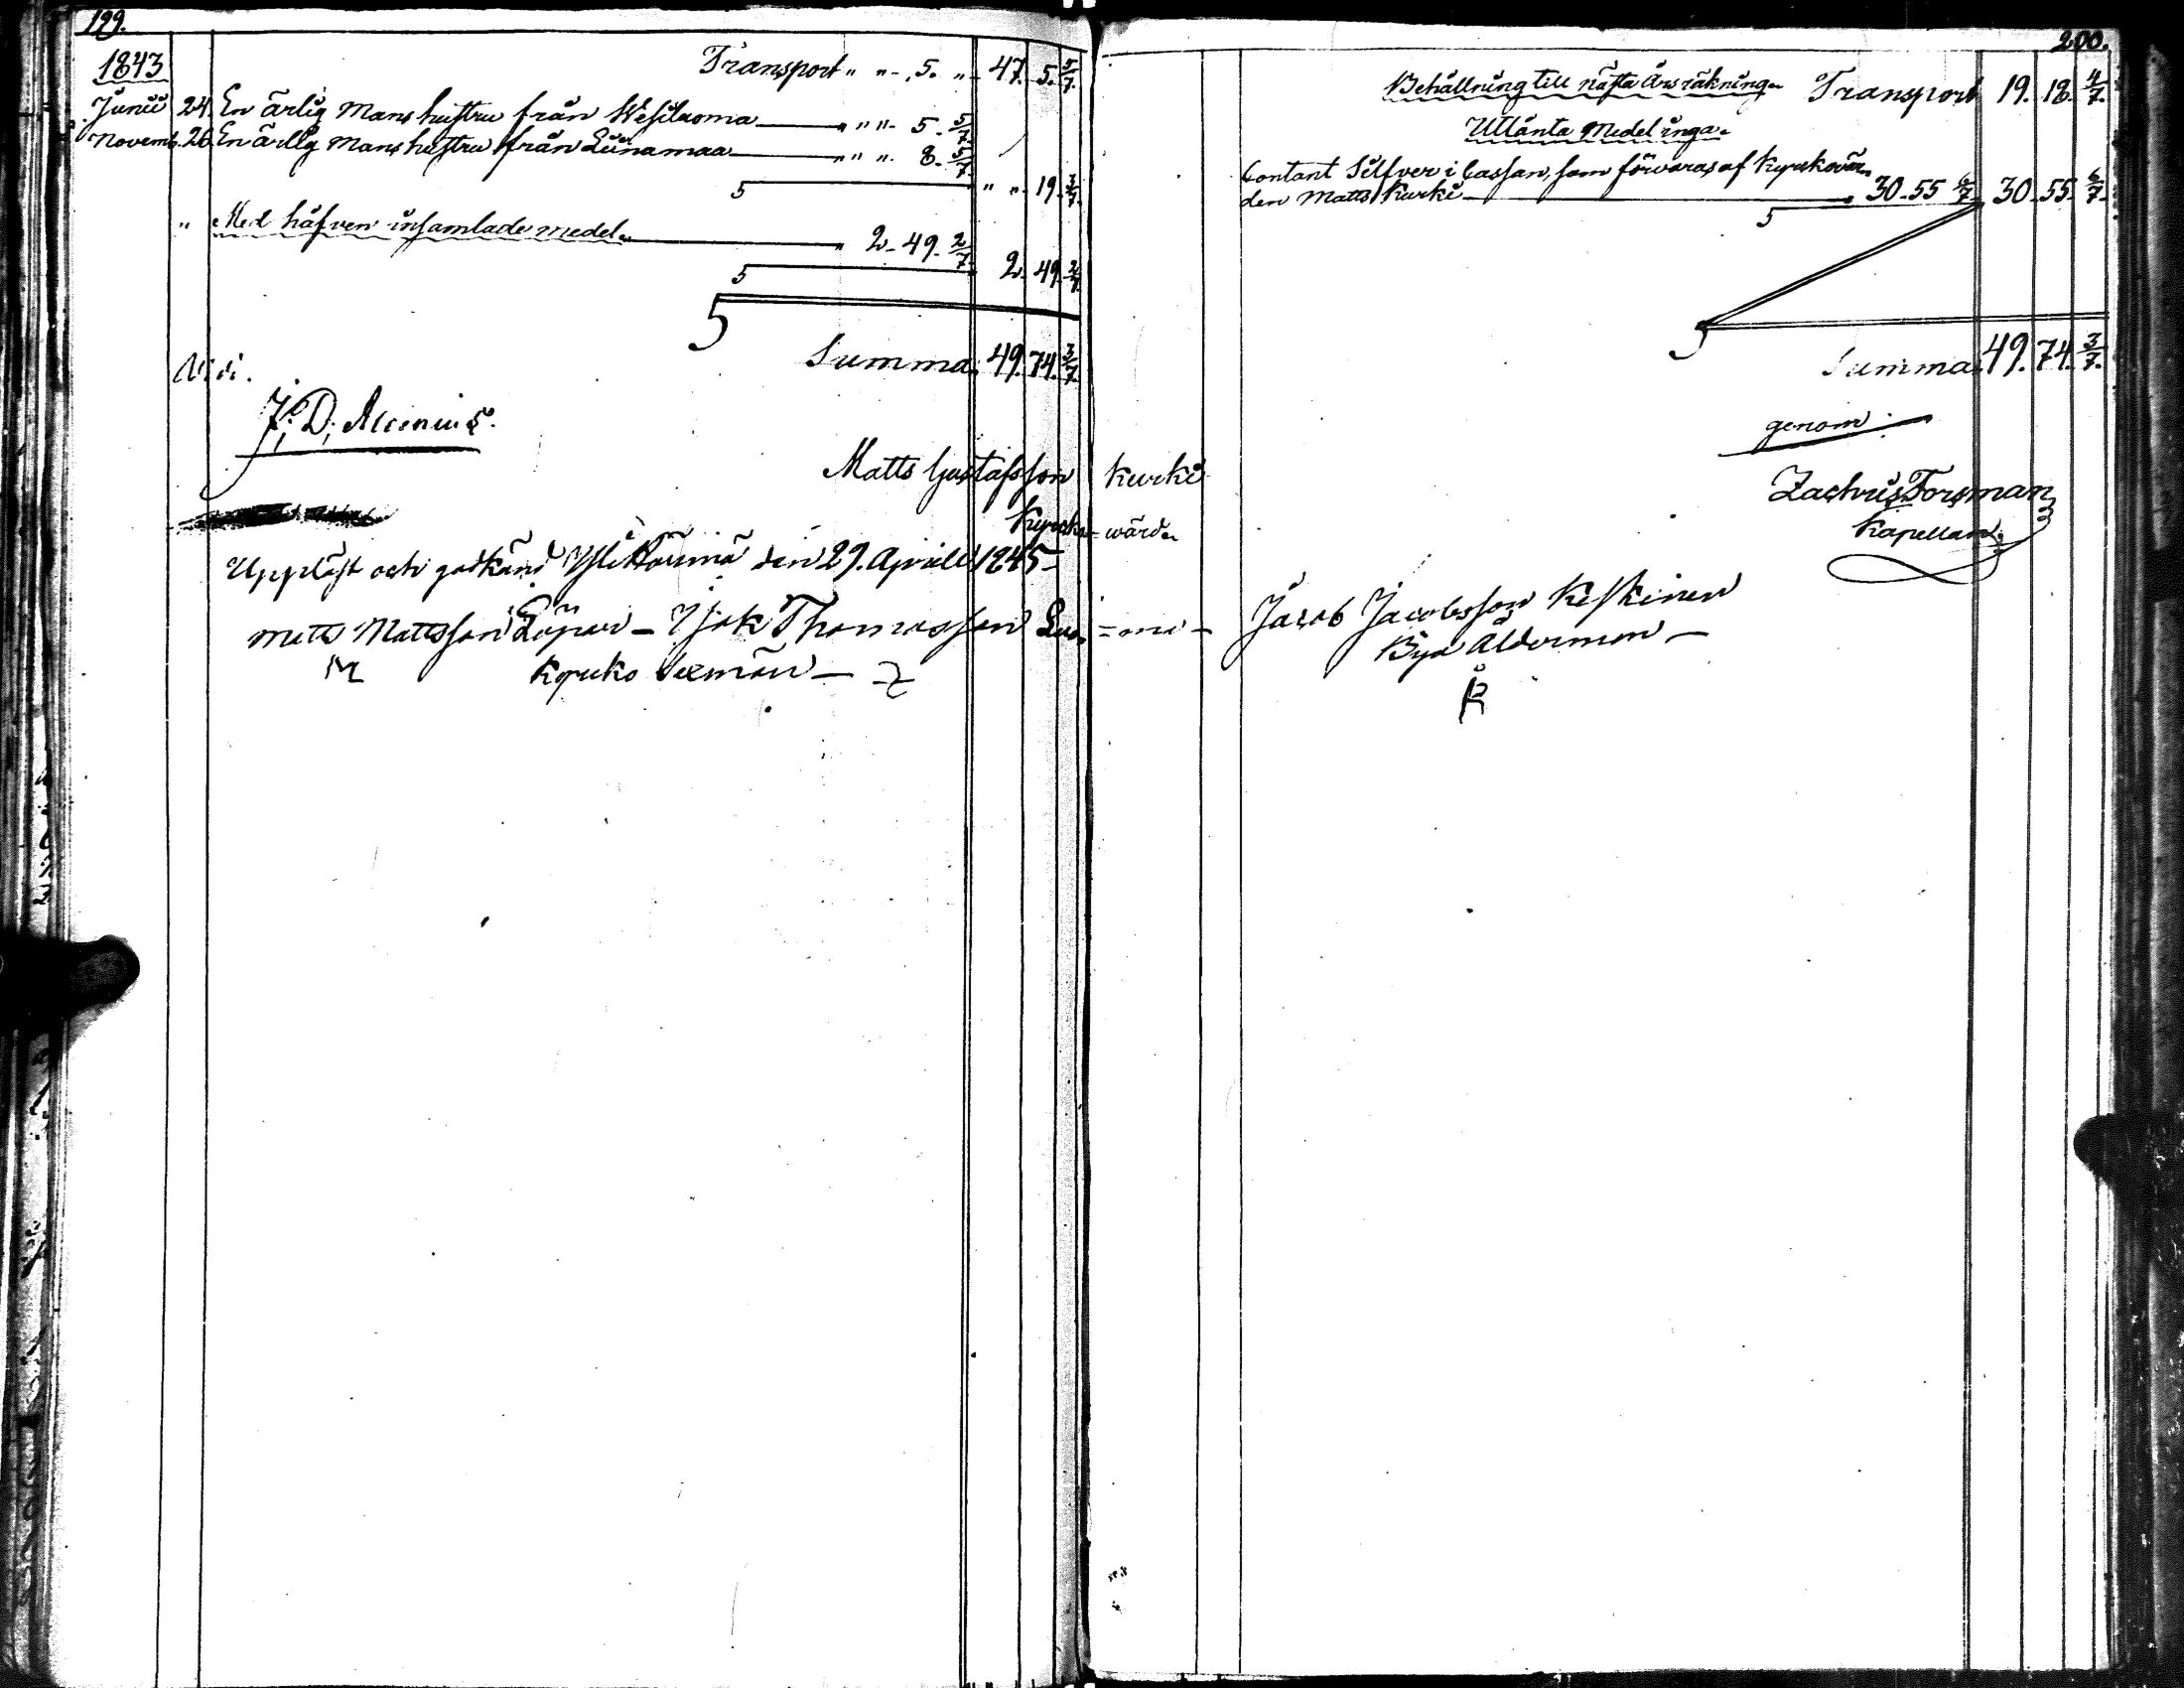 199.
1843
Transport " " - 5. " 47. 5. 5/7.
Junii 24. En ärlig Mans hustru från Wesilaoma " " - 5 - 5/7.
Novemb. 26. En ärlig Mans hustru från Liinamaa " " - 8 - 5/7.
5 " " 19. 3/7.
" Med håfven insamlade medel. " 2 - 49 - 2/7.
5 2. 49. 2/7.
Summa. 49. 74. 3/7.
Vidi.
J. D. Alcenius.
Matts Gustafsson Kurki
Kyrko=wärd.
Uppläst och godkänd Yli Härmä den 29. Aprill 1845 -
Matts Mattsson Löpar - Isak Thomasson Luo=ma - Jacob Jacobsson Keskinen
M Kyrko Sexmän - Z Bya Ålderman -
200.
Behållning till nästa Årsräkning. Transport 19. 18. 4/7.
Utlånta Medel inga.
Contant Silfver i Cassan, som förvaras af Kyrkovär-
den Matts Kurki 30 - 55 6/7. 30. 55. 6/7.
5
Summa. 49. 74. 3/7.
genom
Zachris Forsman
Kapellan.